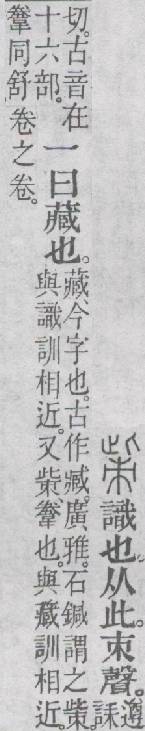 識也。从此。朿聲。遵
誄
切。古音在
十六部。
一曰藏也。
藏今字也。古作臧。廣雅。石鍼謂之㭰。
與識訓相近。又㭰、韏也。與藏訓相近。
韏同舒卷之卷。